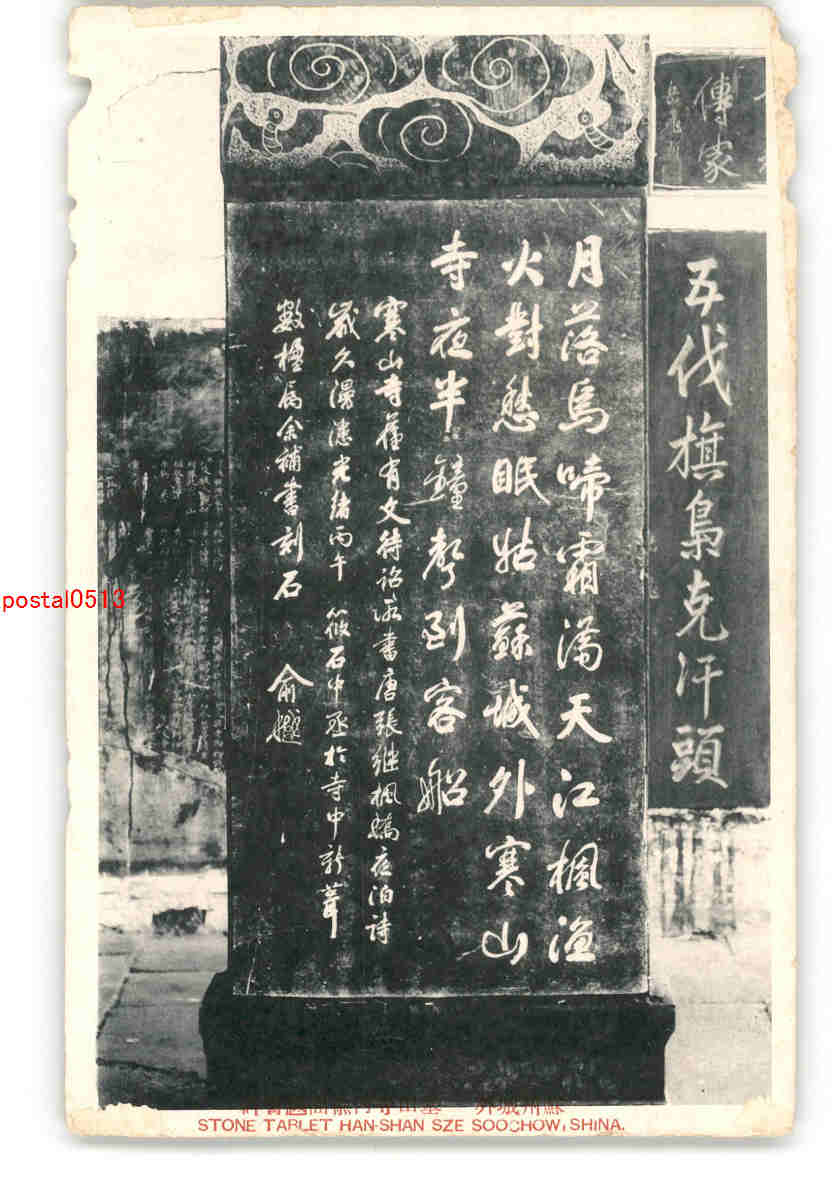 傳家
五伐旗梟克汗頭
月落烏啼霜滿天江楓漁
火對愁眠姑蘇城外寒山
寺夜半鐘聲到客船
寒山寺舊有文待詔所書唐張繼楓橋夜泊詩
歲久漫漶光緒丙午筱石中丞於寺中新葺
數楹屬余補書刻石
俞樾
postal0513
STONE TABLET HAN-SHAN SZE SOOCHOW, SHINA.